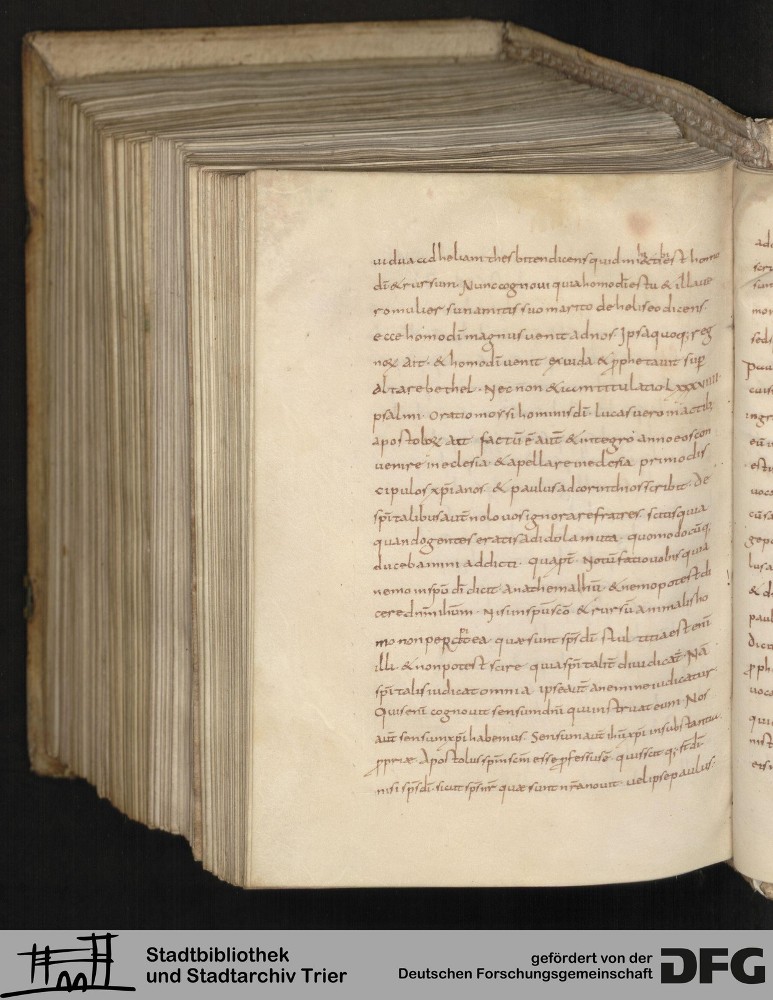 uidua ad heliam thesbiten dicens quid mihi & tibi est homo
dī & rursum. Nunc cognoui quia homo dī es tu & illa ue
ro mulier sunamitis suo marito de heliseo dicens.
ecce homo dī magnus uenit ad nos. Ipsa quoq; reg
noꝝ ait. & homo dī uenit ex iuda & ꝓphetauit sup̄
altare bethel. Nec non & iam titulatio LXXXVIIII
psalmi. Oratio mossi hominis dī. lucas uero in actib;
apostoloꝝ ait factū ē aut̄ & integro anno eos con
uenire in eclesia. & apellare in eclesia primo dis
cipulos xp̄ianos. & paulus ad corinthios scribit. De
sp̄italibus aut̄ nolo uos ignorare fratres. scitis quia
quando gentes eratis ad idola muta. quomodocūq;
ducebamini addicti. quapt̄. Notū facio uobis quia
nemo in sp̄u dī dicit anathema ihū. & nemo potest di
cere dn̄m ihūm. Nisi in sp̄u sc̄o & rursū animalis ho
mo non percipit ea quae sunt sp̄s dī. Stultitia est enī
illi. & non potest scire quia sp̄italit̄ diiudicat̄. Nā
sp̄italis iudicat omnia ipse aut̄ a nemine iudicatur
Quis enī cognouit sensum dn̄i qui instruat eum. Nos
aut̄ sensum xp̄i habemus. Sensum aut̄ ihū xp̄i in substantia
ꝓpriæ Apostolus sp̄m sc̄m esse ꝓfessus ē. quis scit q; st̄ dī
nisi sp̄s dī. sicut sp̄s nr̄ quae sunt nr̄a nouit. uel ipse paulus.
Stadtbibliothek
und Stadtarchiv Trier
gefördert von der
Deutschen Forschungsgemeinschaft
DFG